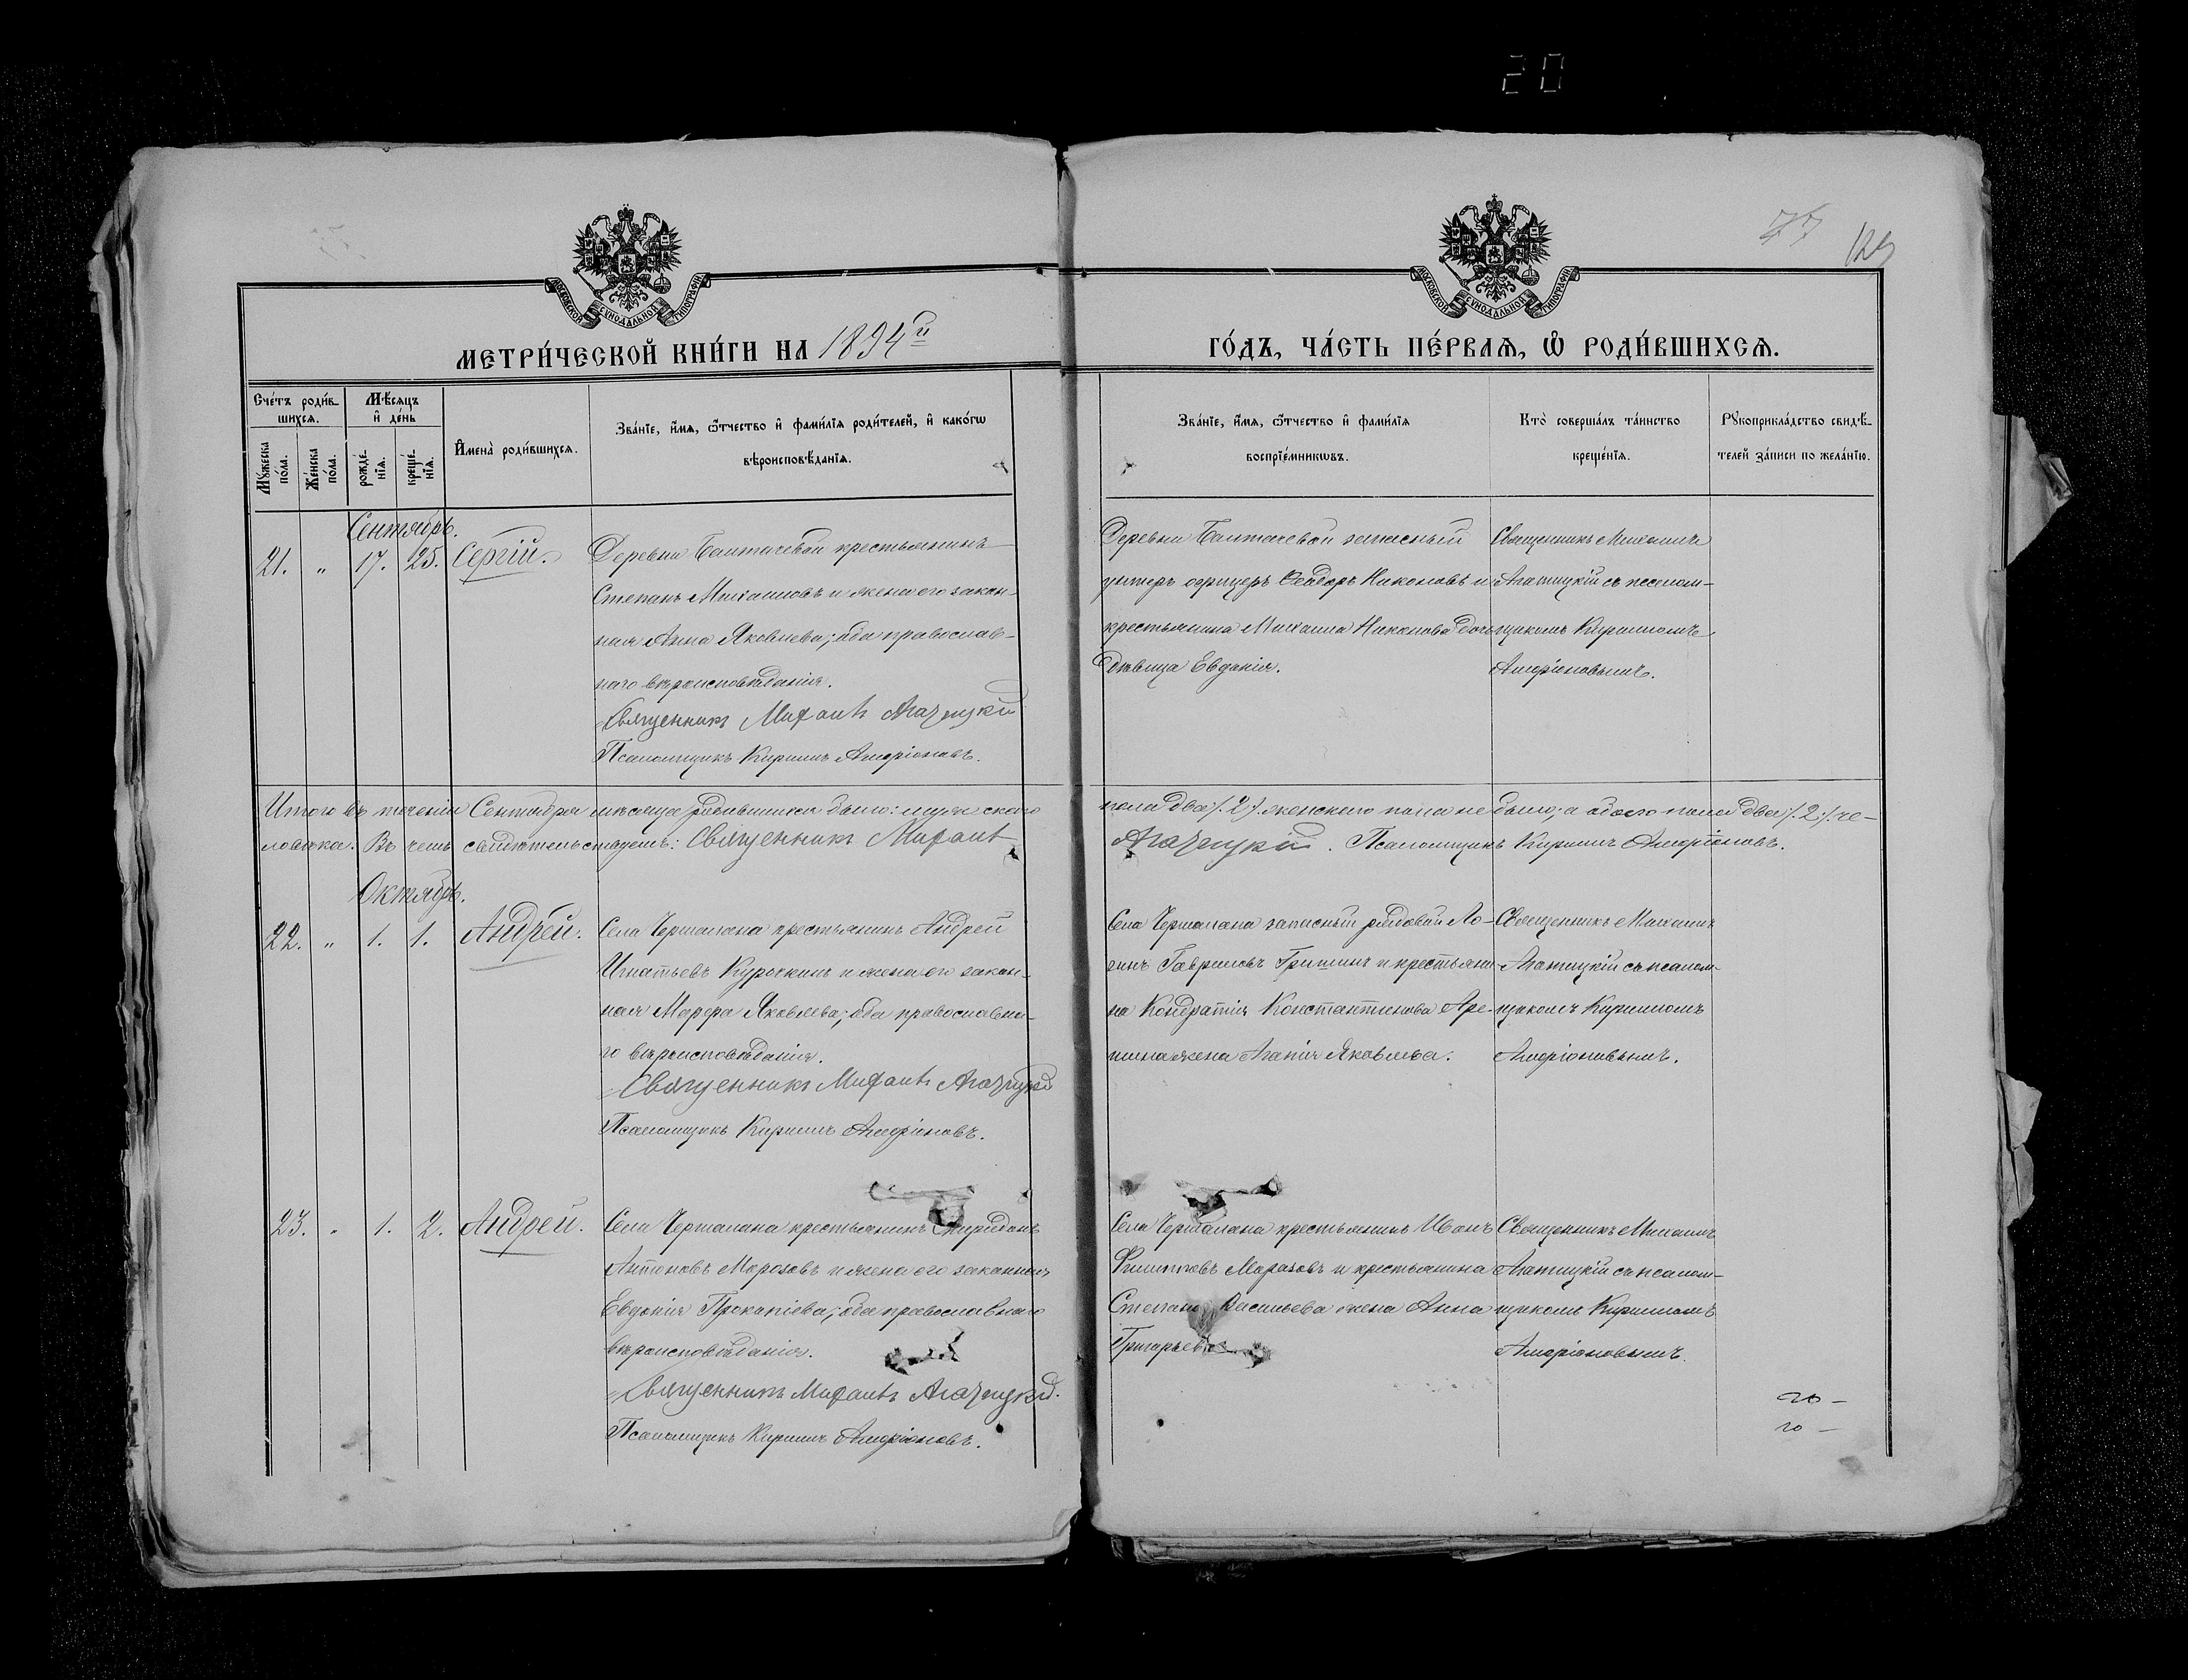 20
77
129
МОСКОВСКОЙ СѴНОДАЛЬНОЙ ТИПОГРАФІИ
МОСКОВСКОЙ СѴНОДАЛЬНОЙ ТИПОГРАФІИ
МЕТРИ́ЧЕСКОЙ КНИ́ГИ НА 1894й
ГО́ДЪ, ЧА́СТЬ ПЕ́РВАѦ, Ѡ РОДИ́ВШИХСѦ.
Сче́тъ роди́в-
шихсѧ.
Мꙋ́жеска по́ла.
Же́нска по́ла.
Мѣ́сѧцъ
и҆ де́нь
рожде́-
нїѧ.
креще́-
нїѧ.
И҆мена̀ роди́вшихсѧ.
Зва́нїе, и҆́мѧ, ѻ҆́тчество и҆ фами́лїѧ роди́телей, и҆ како́гѡ
вѣроисповѣ́данїѧ.
Зва́нїе, и҆́мѧ, ѻ҆́тчество и҆ фами́лїѧ
воспрїе́мникѡвъ.
Кто̀ соверша́лъ та́инство
креще́нїѧ.
Рꙋкоприкла́дство свидѣ́-
телей за́писи по жела́нїю.
Сентябрь.
21. " 17. 25. Сергій.
Деревни крестьянинъ
Степанъ Михаиловъ и жена его закон-
ная Анна Яковлева; оба православ-
наго вѣроисповѣданія.
Священникъ Михаилъ
Псаломщикъ Кириллъ
Деревни запасный
унтеръ офицеръ Ѳеодоръ Никоновъ и
крестьянина Михаила Никонова дочь
дѣвица Евдокія.
Священникъ Михаилъ
съ псалом-
щикомъ Кирилломъ
Итого въ теченіи Сентября мѣсяца родившихся было: мужскаго
пола два /.2./. женскаго пола не было; а обоего пола два /.2./. че-
ловѣка. Въ чемъ свидѣтельствуемъ: Священникъ Михаилъ
Псаломщикъ Кириллъ
Октябрь.
22. " 1. 1. Андрей.
Села крестьянинъ Андрей
Игнатьевъ Курочкинъ и жена его закон-
ная Марфа Яковлева; оба православна-
го вѣроисповѣданія.
Священникъ Михаилъ
Псаломщикъ Кириллъ
Села запасный рядовой Ло-
гинъ Гавриловъ Гришинъ и крестьяни-
на Кондратія Константинова Аре-
жена Агапія Яковлева.
Священникъ Михаилъ
съ псалом-
щикомъ Кирилломъ
23. " 1. 2. Андрей.
Села крестьянинъ Спиридонъ
Антоновъ Морозовъ и жена его законная
Евдокія Прокопіева; оба православнаго
вѣроисповѣданія.
Священникъ Михаилъ
Псаломщикъ Кириллъ
Села крестьянинъ Иванъ
Филипповъ Морозовъ и крестьянина
Степана Васильева жена Анна
Григорьева
Священникъ Михаилъ
съ псалом-
щикомъ Кирилломъ